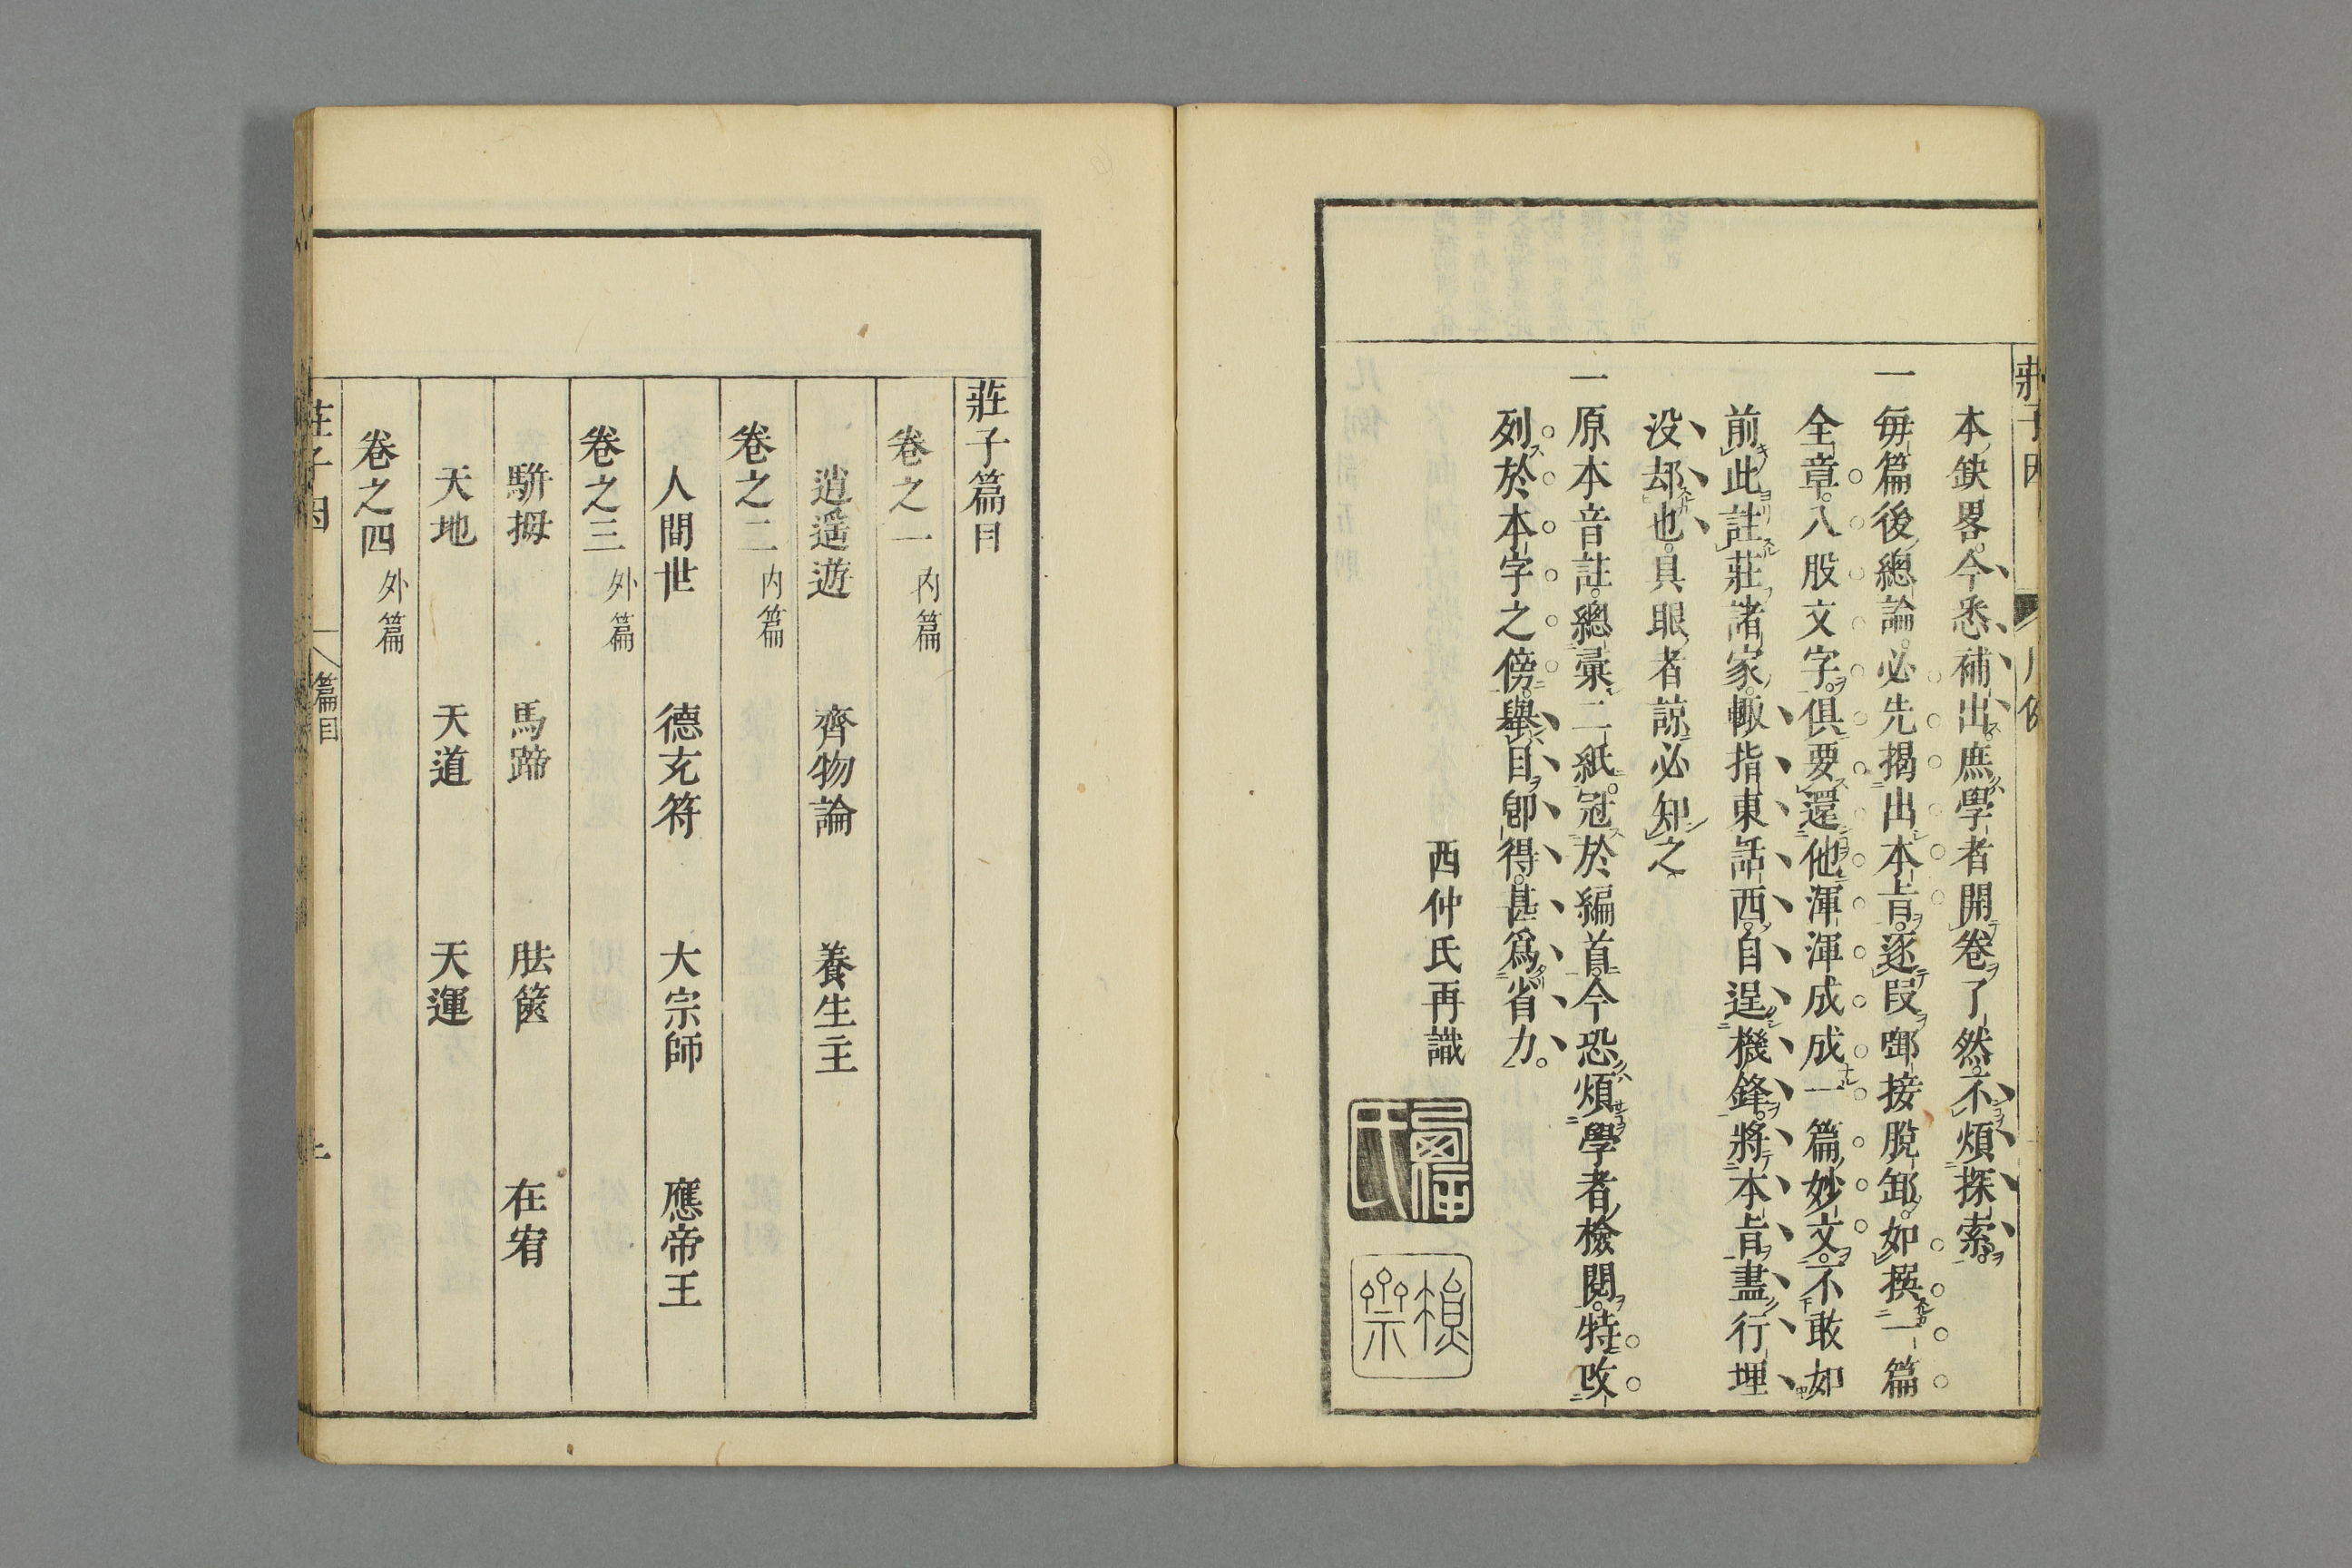 本缺畧今悉補出庶學者開卷了然不煩探索
一每篇後總論必先揭出本旨逐段啣接脫卸如撰一篇
全章八股文字俱要還他渾渾成成一篇妙文不敢如
前此註莊諸家輙指東話西自逞機鋒將本旨盡行埋
没却也具眼者諒必知之
一原本音註總彙二紙冠於編首今恐煩學者檢閱特改
列於本字之傍舉目卽得甚爲省力
西仲氏再識
莊子篇目
卷之一 內篇
逍遥遊 齊物論 養生主
卷之二 内篇
人間世 德充符 大宗師 應帝王
卷之三 外篇
騈拇 馬蹄 胠篋 在宥
天地 天道 天運
卷之四 外篇
莊子因 篇目